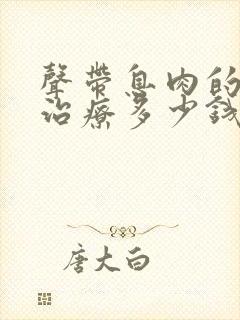 聲帶息肉的
治療多少錢
唐大白